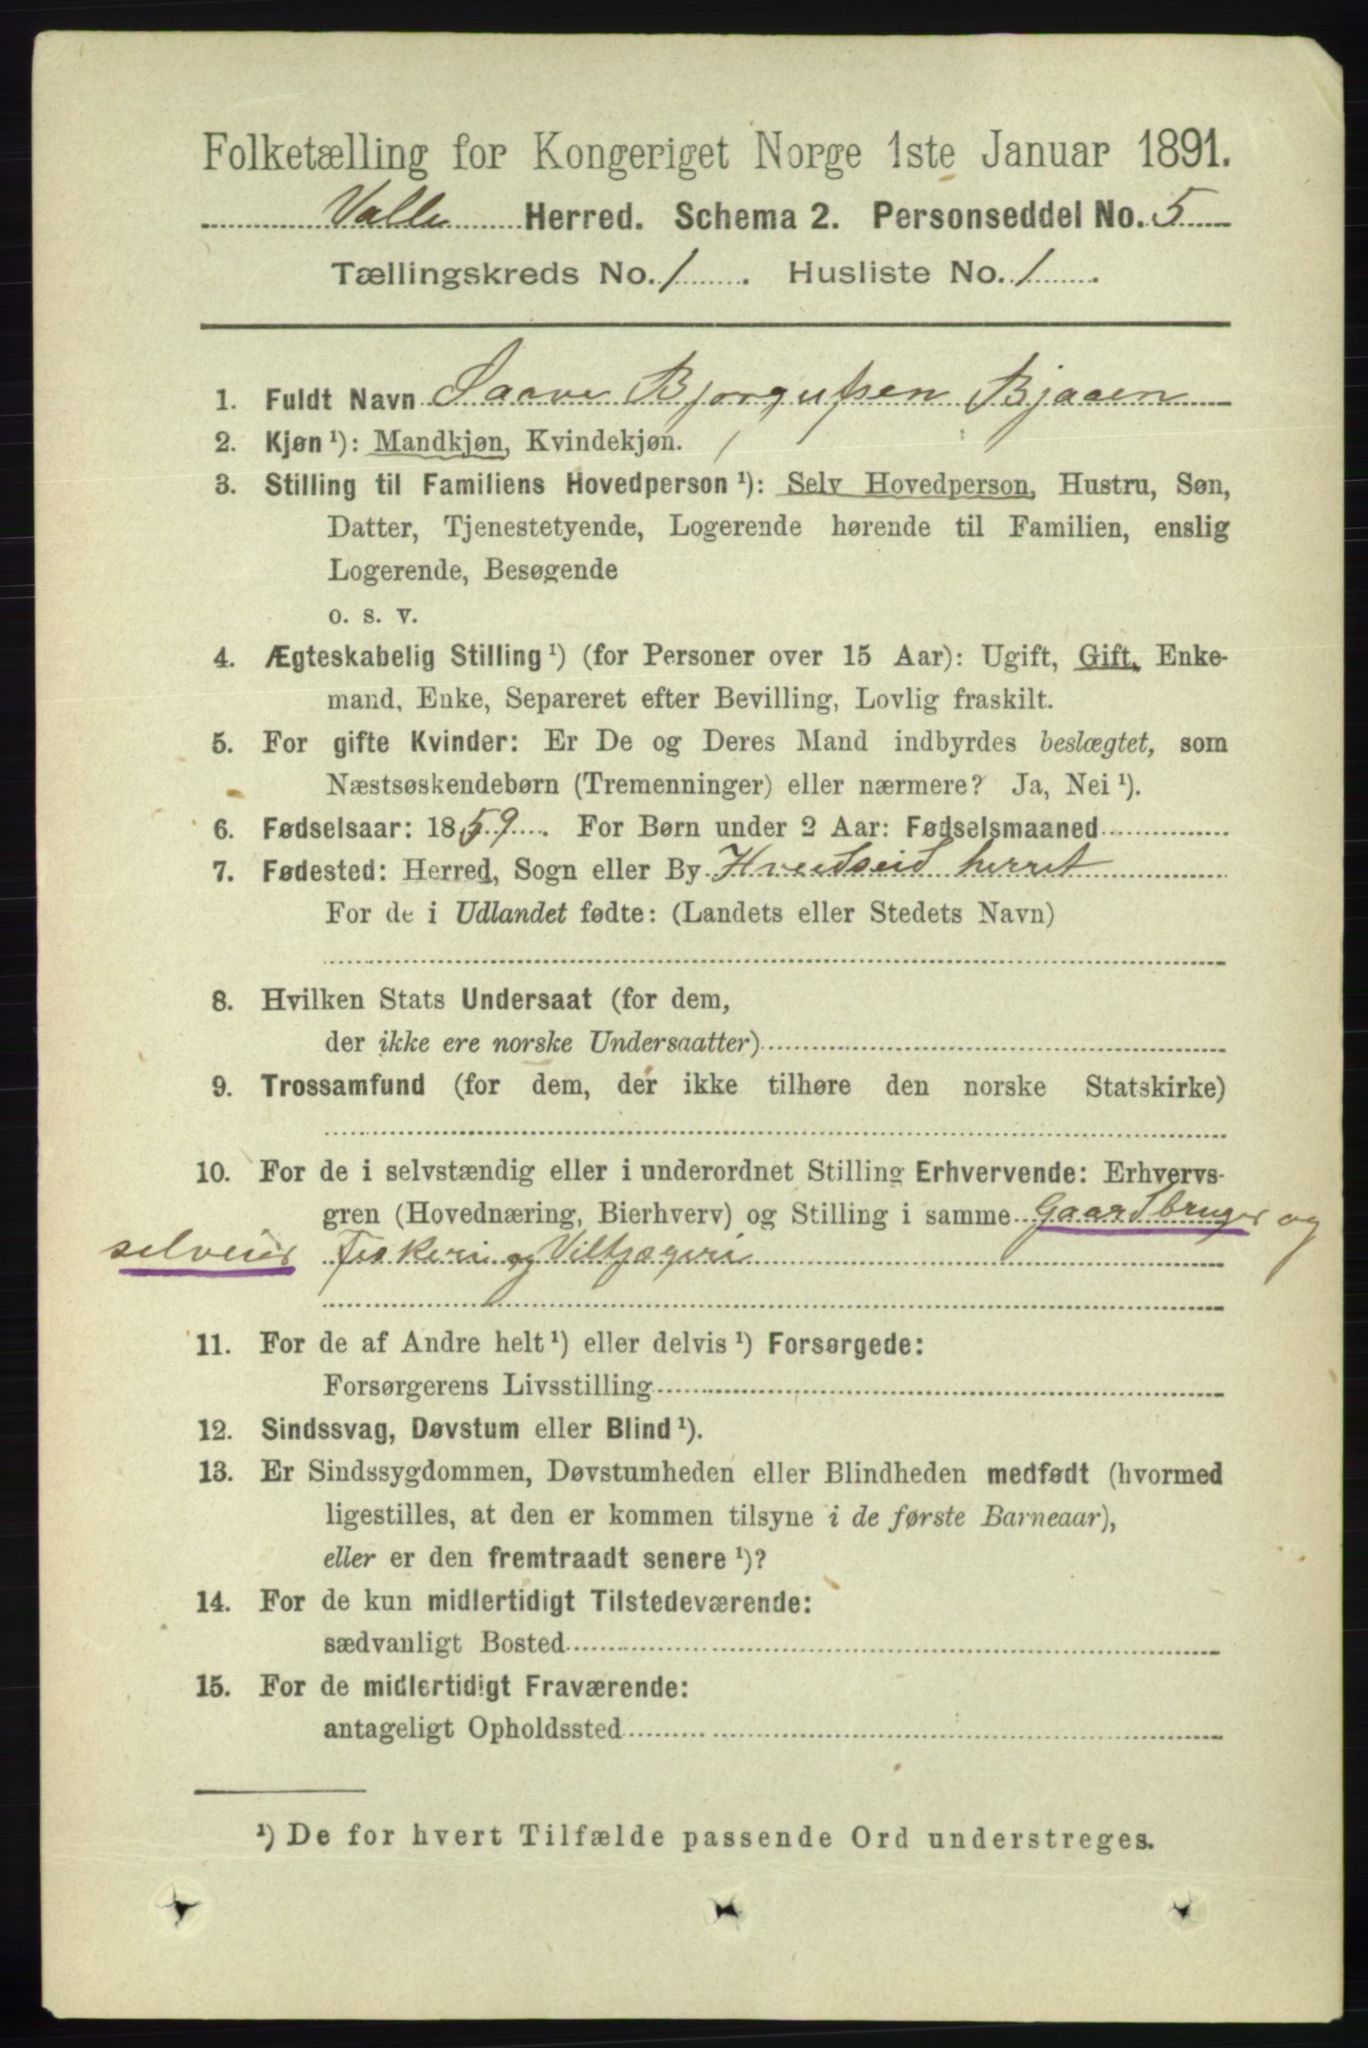 Folketælling for Kongeriget Norge 1ste Januar 1891.
Valle Herred. Schema 2. Personseddel No. 5
Tællingskreds No. 1. Husliste No. 1.
1. Fuldt Navn Saave Bjorgufsen Bjaaen
2. Kjøn ¹): Mandkjøn, Kvindekjøn.
3. Stilling til Familiens Hovedperson ¹): Selv Hovedperson, Hustru, Søn,
Datter, Tjenestetyende, Logerende hørende til Familien, enslig
Logerende, Besøgende
o. s. v.
4. Ægteskabelig Stilling ¹) (for Personer over 15 Aar): Ugift, Gift, Enke-
mand, Enke, Separeret efter Bevilling, Lovlig fraskilt.
5. For gifte Kvinder: Er De og Deres Mand indbyrdes beslægtet, som
Næstsøskendebørn (Tremenninger) eller nærmere? Ja, Nei ¹).
6. Fødselsaar: 1859. For Børn under 2 Aar: Fødselsmaaned
7. Fødested: Herred, Sogn eller By Hvidseid herret
For de i Udlandet fødte: (Landets eller Stedets Navn)
8. Hvilken Stats Undersaat (for dem,
der ikke ere norske Undersaatter)
9. Trossamfund (for dem, der ikke tilhøre den norske Statskirke)
10. For de i selvstændig eller i underordnet Stilling Erhvervende: Erhvervs-
gren (Hovednæring, Bierhverv) og Stilling i samme Gaardbruger og
selveier Fiskeri og Viltjægeri
11. For de af Andre helt ¹) eller delvis ¹) Forsørgede:
Forsørgerens Livsstilling
12. Sindssvag, Døvstum eller Blind ¹).
13. Er Sindssygdommen, Døvstumheden eller Blindheden medfødt (hvormed
ligestilles, at den er kommen tilsyne i de første Barneaar),
eller er den fremtraadt senere ¹)?
14. For de kun midlertidigt Tilstedeværende:
sædvanligt Bosted
15. For de midlertidigt Fraværende:
antageligt Opholdssted
¹) De for hvert Tilfælde passende Ord understreges.